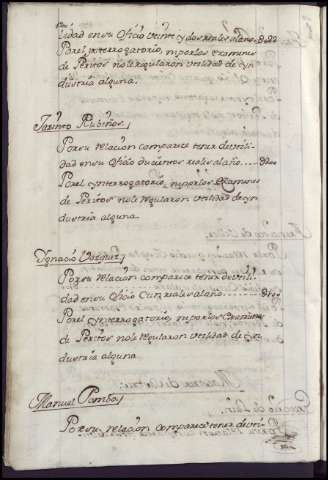 lidad en su oficio veinte y dos reales al año
Por el ynterrogatorio, ni por los examenes
de Peritos no le regularon utilidad de yn
dustria alguna.
Jazinto Rubiños
Por su relacion comparece tener de utili
dad en su oficio ducientos reales al año
Por el ynterrogatorio, ni por los examenes
de Peritos no le regularon utilidad de yn
dustria alguna.
Ygnacio Vazquez
Por su relacion comparece tener de utili
dad en su oficio Cien reales al año
Por el ynterrogatorio, ni por los examenes
de Peritos no le regularon utilidad de yn
dustria alguna
Manuel Pombo
Por su relacion comparece tener de uti